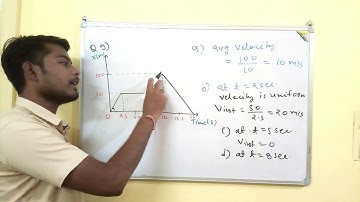 Q.9)
x(m)
100
50
0 2.5 5
Time(s)
a) avg velocity
= 100/10 = 10 m/s
b) at t = 2 sec
velocity is uniform
Vinst = 50/2.5 = 20 m/s
c) at t = 5 sec
Vinst = 0
d) at t = 8 sec